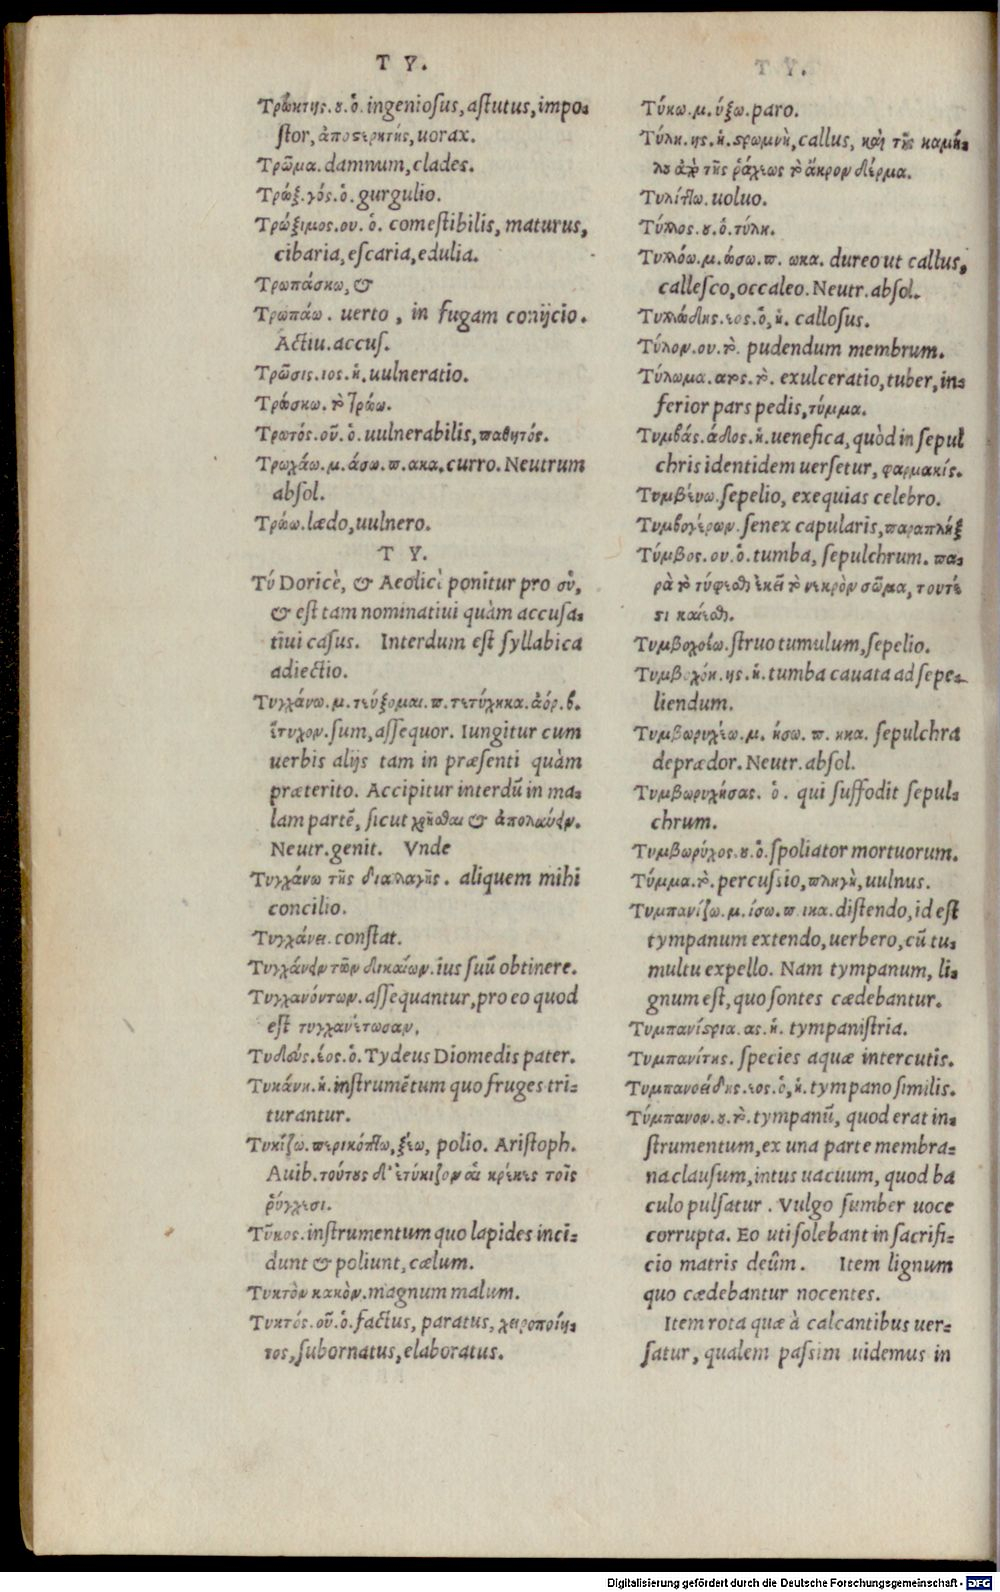 T Y.
Τρώκτης.ου.ὁ.ingeniosus,astutus,impo⸗
stor,ἀποστερητής,uorax.
Τρῶμα.damnum,clades.
Τρώξ.γός.ὁ.gurgulio.
Τρώξιμος.ου.ὁ. comestibilis, maturus,
cibaria,escaria,edulia.
Τρωπάσκω,&
Τρωπάω. uerto, in fugam conijcio.
Actiu.accus.
Τρῶσις.ιος.ἡ.uulneratio.
Τρώσκω.τὸ τρώω.
Τρωτός.οῦ.ὁ.uulnerabilis,παθητός.
Τρωχάω.μ.άσω.π.ακα.curro.Neutrum
absol.
Τρώω.lædo,uulnero.
T Y.
Τύ Doricè, & Aeolicè ponitur pro σὺ,
& est tam nominatiui quàm accusa⸗
tiui casus. Interdum est syllabica
adiectio.
Τυγχάνω.μ.τεύξομαι.π.τετύχηκα.ἀόρ.β.
ἔτυχον.sum,assequor. Iungitur cum
uerbis alijs tam in præsenti quàm
præterito. Accipitur interdū in ma⸗
lam partē, sicut χρῆσθαι & ἀπολαύειν.
Neutr.genit. Vnde
Τυγχάνω τῆς διαλαγῆς. aliquem mihi
concilio.
Τυγχάνει.constat.
Τυγχάνειν τῶν δικαίων.ius suū obtinere.
Τυγχανόντων.assequantur,pro eo quod
est τυγχανέτωσαν.
Τυδεύς.έος.ὁ.Tydeus Diomedis pater.
Τυκάνη.ἡ.instrumētum quo fruges tri⸗
turantur.
Τυκίζω.περικόπτω,ξέω, polio. Aristoph.
Auib.τούτους δ' ἐτύκιζον αἱ κρέκες τοῖς
ῥύγχεσι.
Τύκος.instrumentum quo lapides inci⸗
dunt & poliunt,cælum.
Τυκτὸν κακὸν.magnum malum.
Τυκτός.οῦ.ὁ.factus, paratus, χειροποίη⸗
τος,subornatus,elaboratus.
Τύκω.μ.ύξω.paro.
Τύλη.ης.ἡ.στρωμνὴ,callus, καὶ τῆς καμή⸗
λου ἀπὸ τῆς ῥάχεως τὸ ἄκρον δέρμα.
Τυλίττω.uoluo.
Τύλλος.ου.ὁ.τύλη.
Τυλλόω.μ.ώσω.π. ωκα. dureo ut callus,
callesco,occaleo.Neutr.absol.
Τυλλώδης.εος.ὁ,ἡ. callosus.
Τύλον.ου.τὸ. pudendum membrum.
Τύλωμα.ατος.τὸ. exulceratio,tuber,in⸗
ferior pars pedis,τύμμα.
Τυμβάς.άδος.ἡ.uenefica,quòd in sepul
chris identidem uersetur, φαρμακίς.
Τυμβεύω.sepelio, exequias celebro.
Τυμβογέρων.senex capularis,παραπλήξ
Τύμβος.ου.ὁ.tumba, sepulchrum. πα⸗
ρὰ τὸ τύφεσθαι ἐκεῖ τὸ νεκρὸν σῶμα, τουτέ
στι καίεσθαι.
Τυμβοχοέω.struo tumulum,sepelio.
Τυμβοχόη.ης.ἡ.tumba cauata ad sepe⸗
liendum.
Τυμβωρυχέω.μ. ήσω. π. ηκα. sepulchra
deprædor. Neutr.absol.
Τυμβωρυχήσας. ὁ. qui suffodit sepul⸗
chrum.
Τυμβωρύχος.ου.ὁ.spoliator mortuorum.
Τύμμα.τὸ.percussio,πληγὴ,uulnus.
Τυμπανίζω.μ.ίσω.π.ικα.distendo,id est
tympanum extendo,uerbero,cū tu⸗
multu expello. Nam tympanum, li⸗
gnum est,quo sontes cædebantur.
Τυμπανίστρια.ας.ἡ. tympanistria.
Τυμπανίτης. species aquæ intercutis.
Τυμπανοειδής.εος.ὁ,ἡ.tympano similis.
Τύμπανον.ου.τὸ.tympanū, quod erat in⸗
strumentum,ex una parte membra⸗
na clausum,intus uacuum, quod ba
culo pulsatur. Vulgo sumber uoce
corrupta. Eo uti solebant in sacrifi⸗
cio matris deûm. Item lignum
quo cædebantur nocentes.
Item rota quæ à calcantibus uer⸗
satur, qualem passim uidemus in
Digitalisierung gefördert durch die Deutsche Forschungsgemeinschaft - DFG